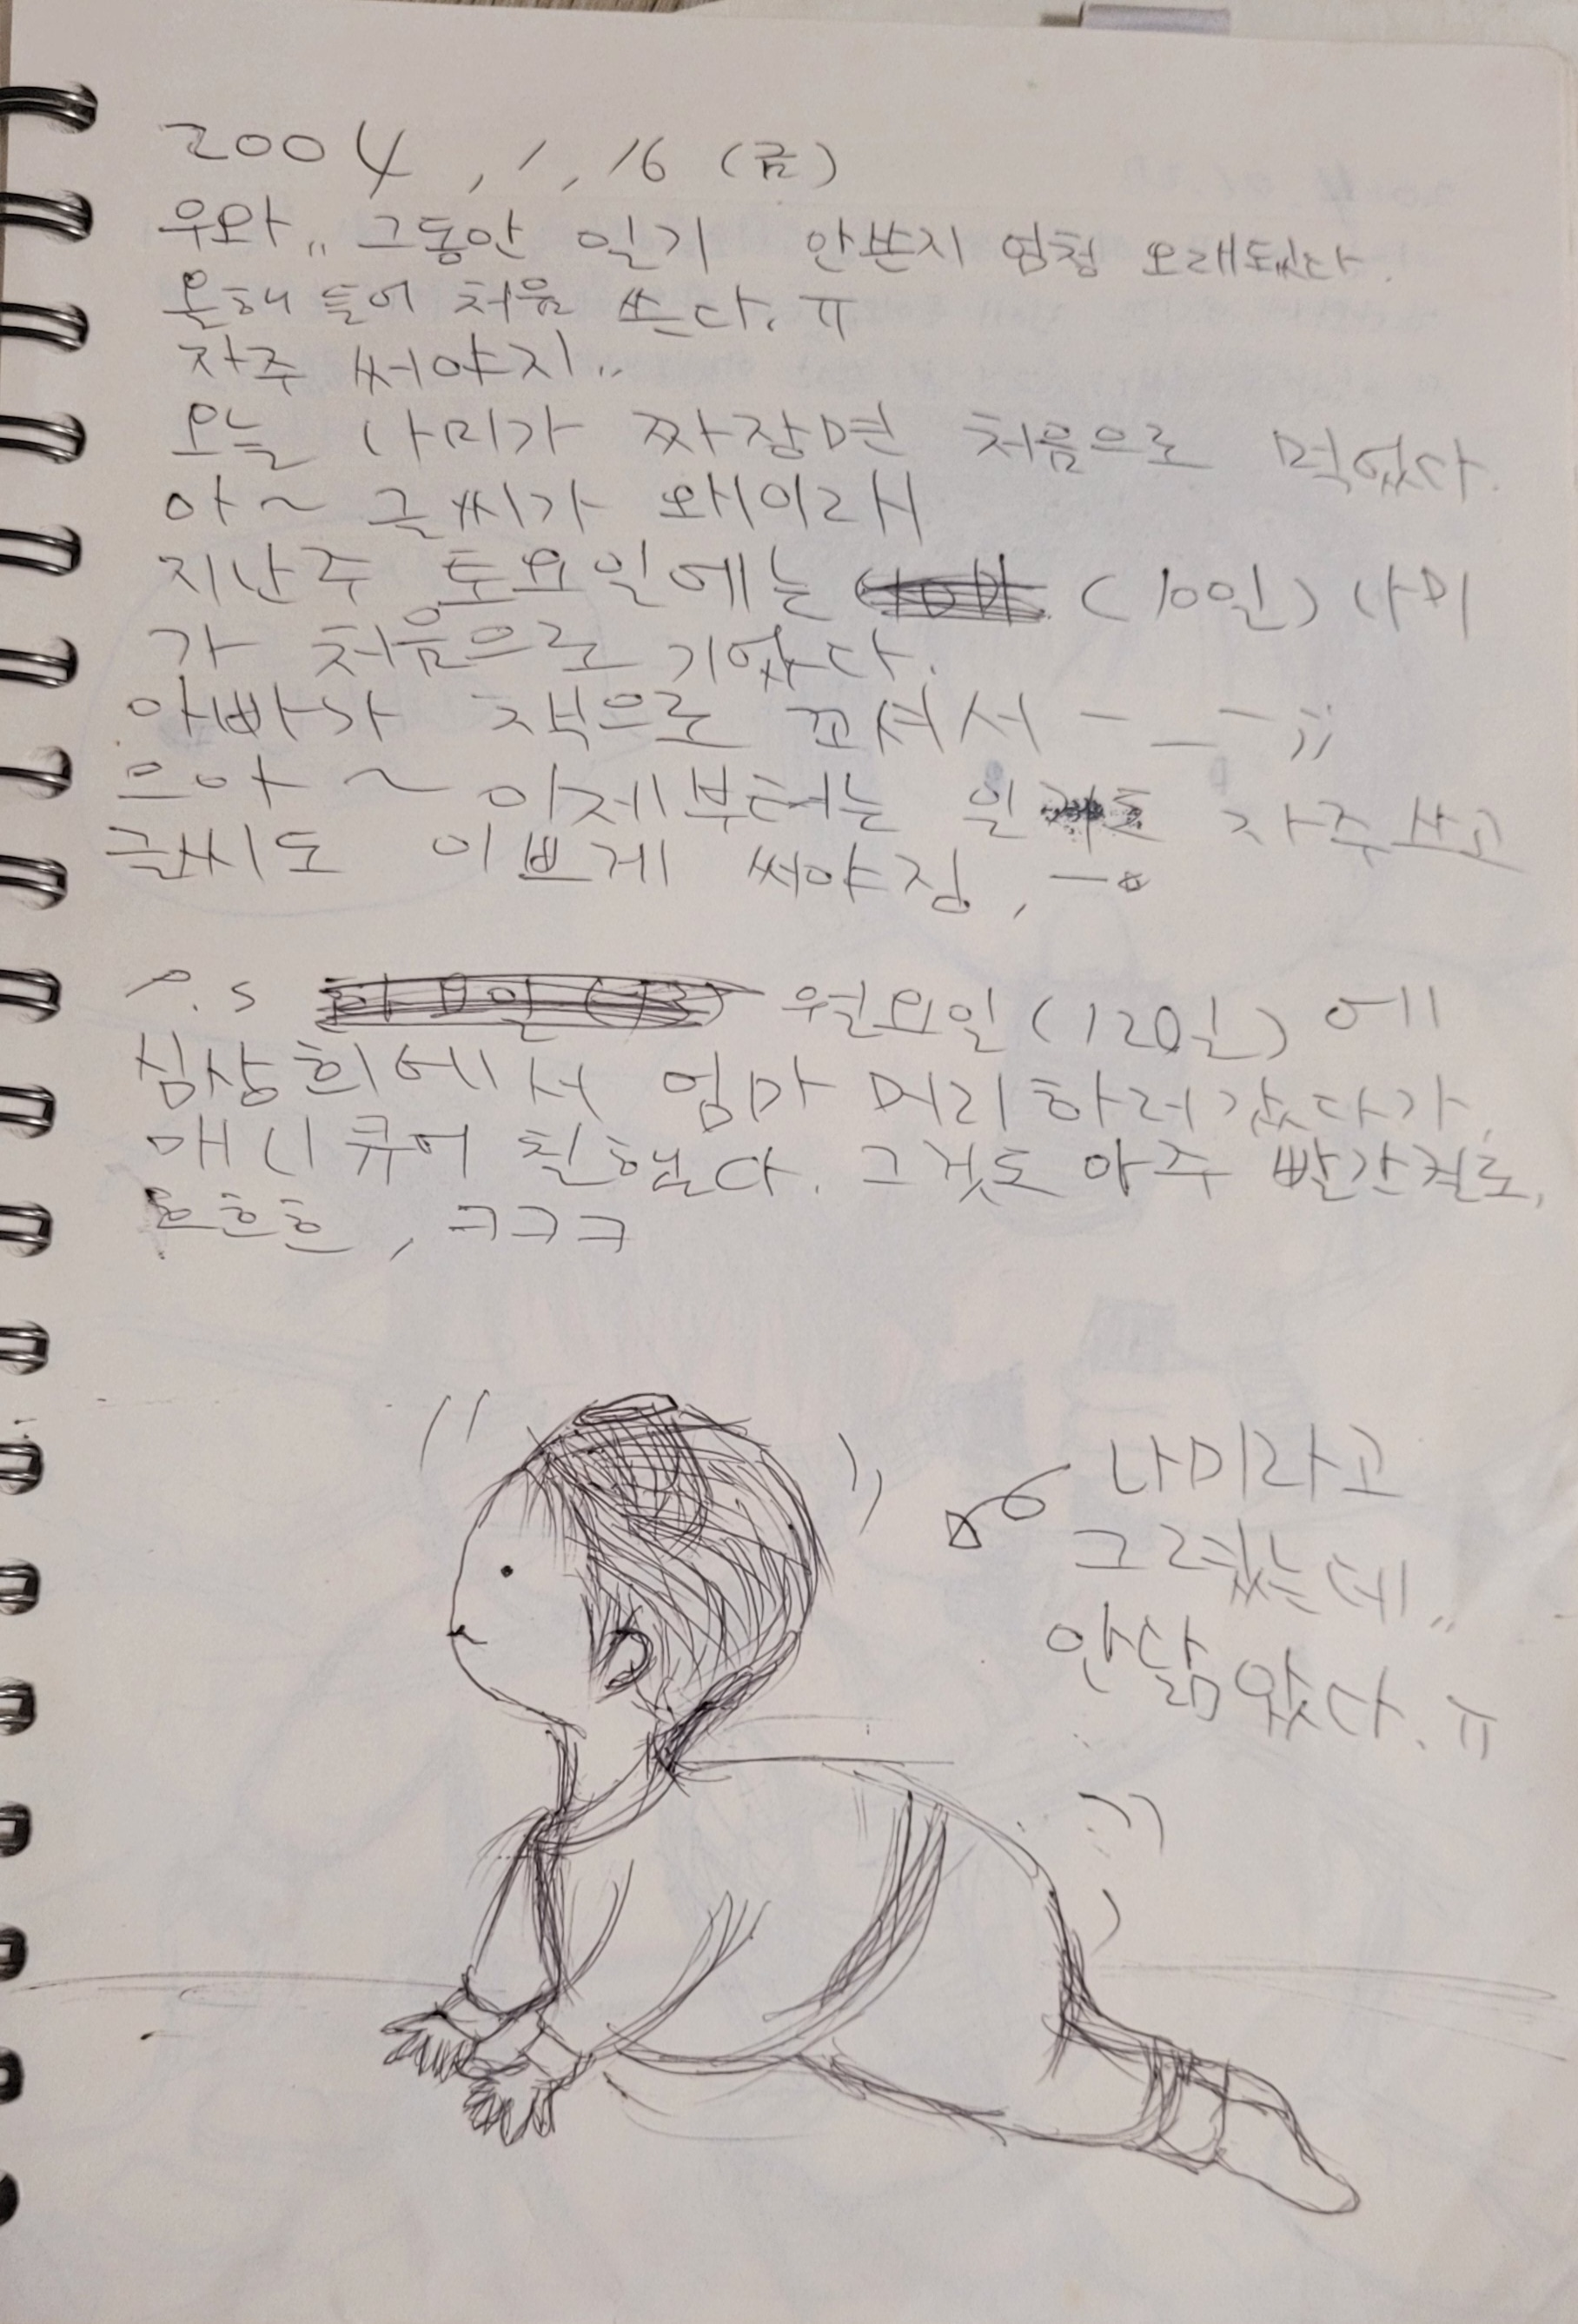 2004, 1, 16 (금)
우와.. 그동안 일기 안쓴지 엄청 오래됐다.
올해 들어 처음 쓴다. ㅠ
자주 써야지..
오늘 나미가 짜장면 처음으로 먹었다.
아~ 글씨가 왜이래
지난주 토요일에는 (10일) 나미
가 처음으로 기었다.
아빠가 책으로 꼬셔서 - _ -;;
으아~ 이제부터는 일기도 자주쓰고
글씨도 이쁘게 써야징,
P.S 월요일 (12일) 에
심상희에서 엄마 머리하러갔다가,
매니큐어 칠했다. 그것도 아주 빨간걸로,
흐흐흐, ㅋㅋㅋ
나미라고
그렸는데..
안닮았다. ㅠ